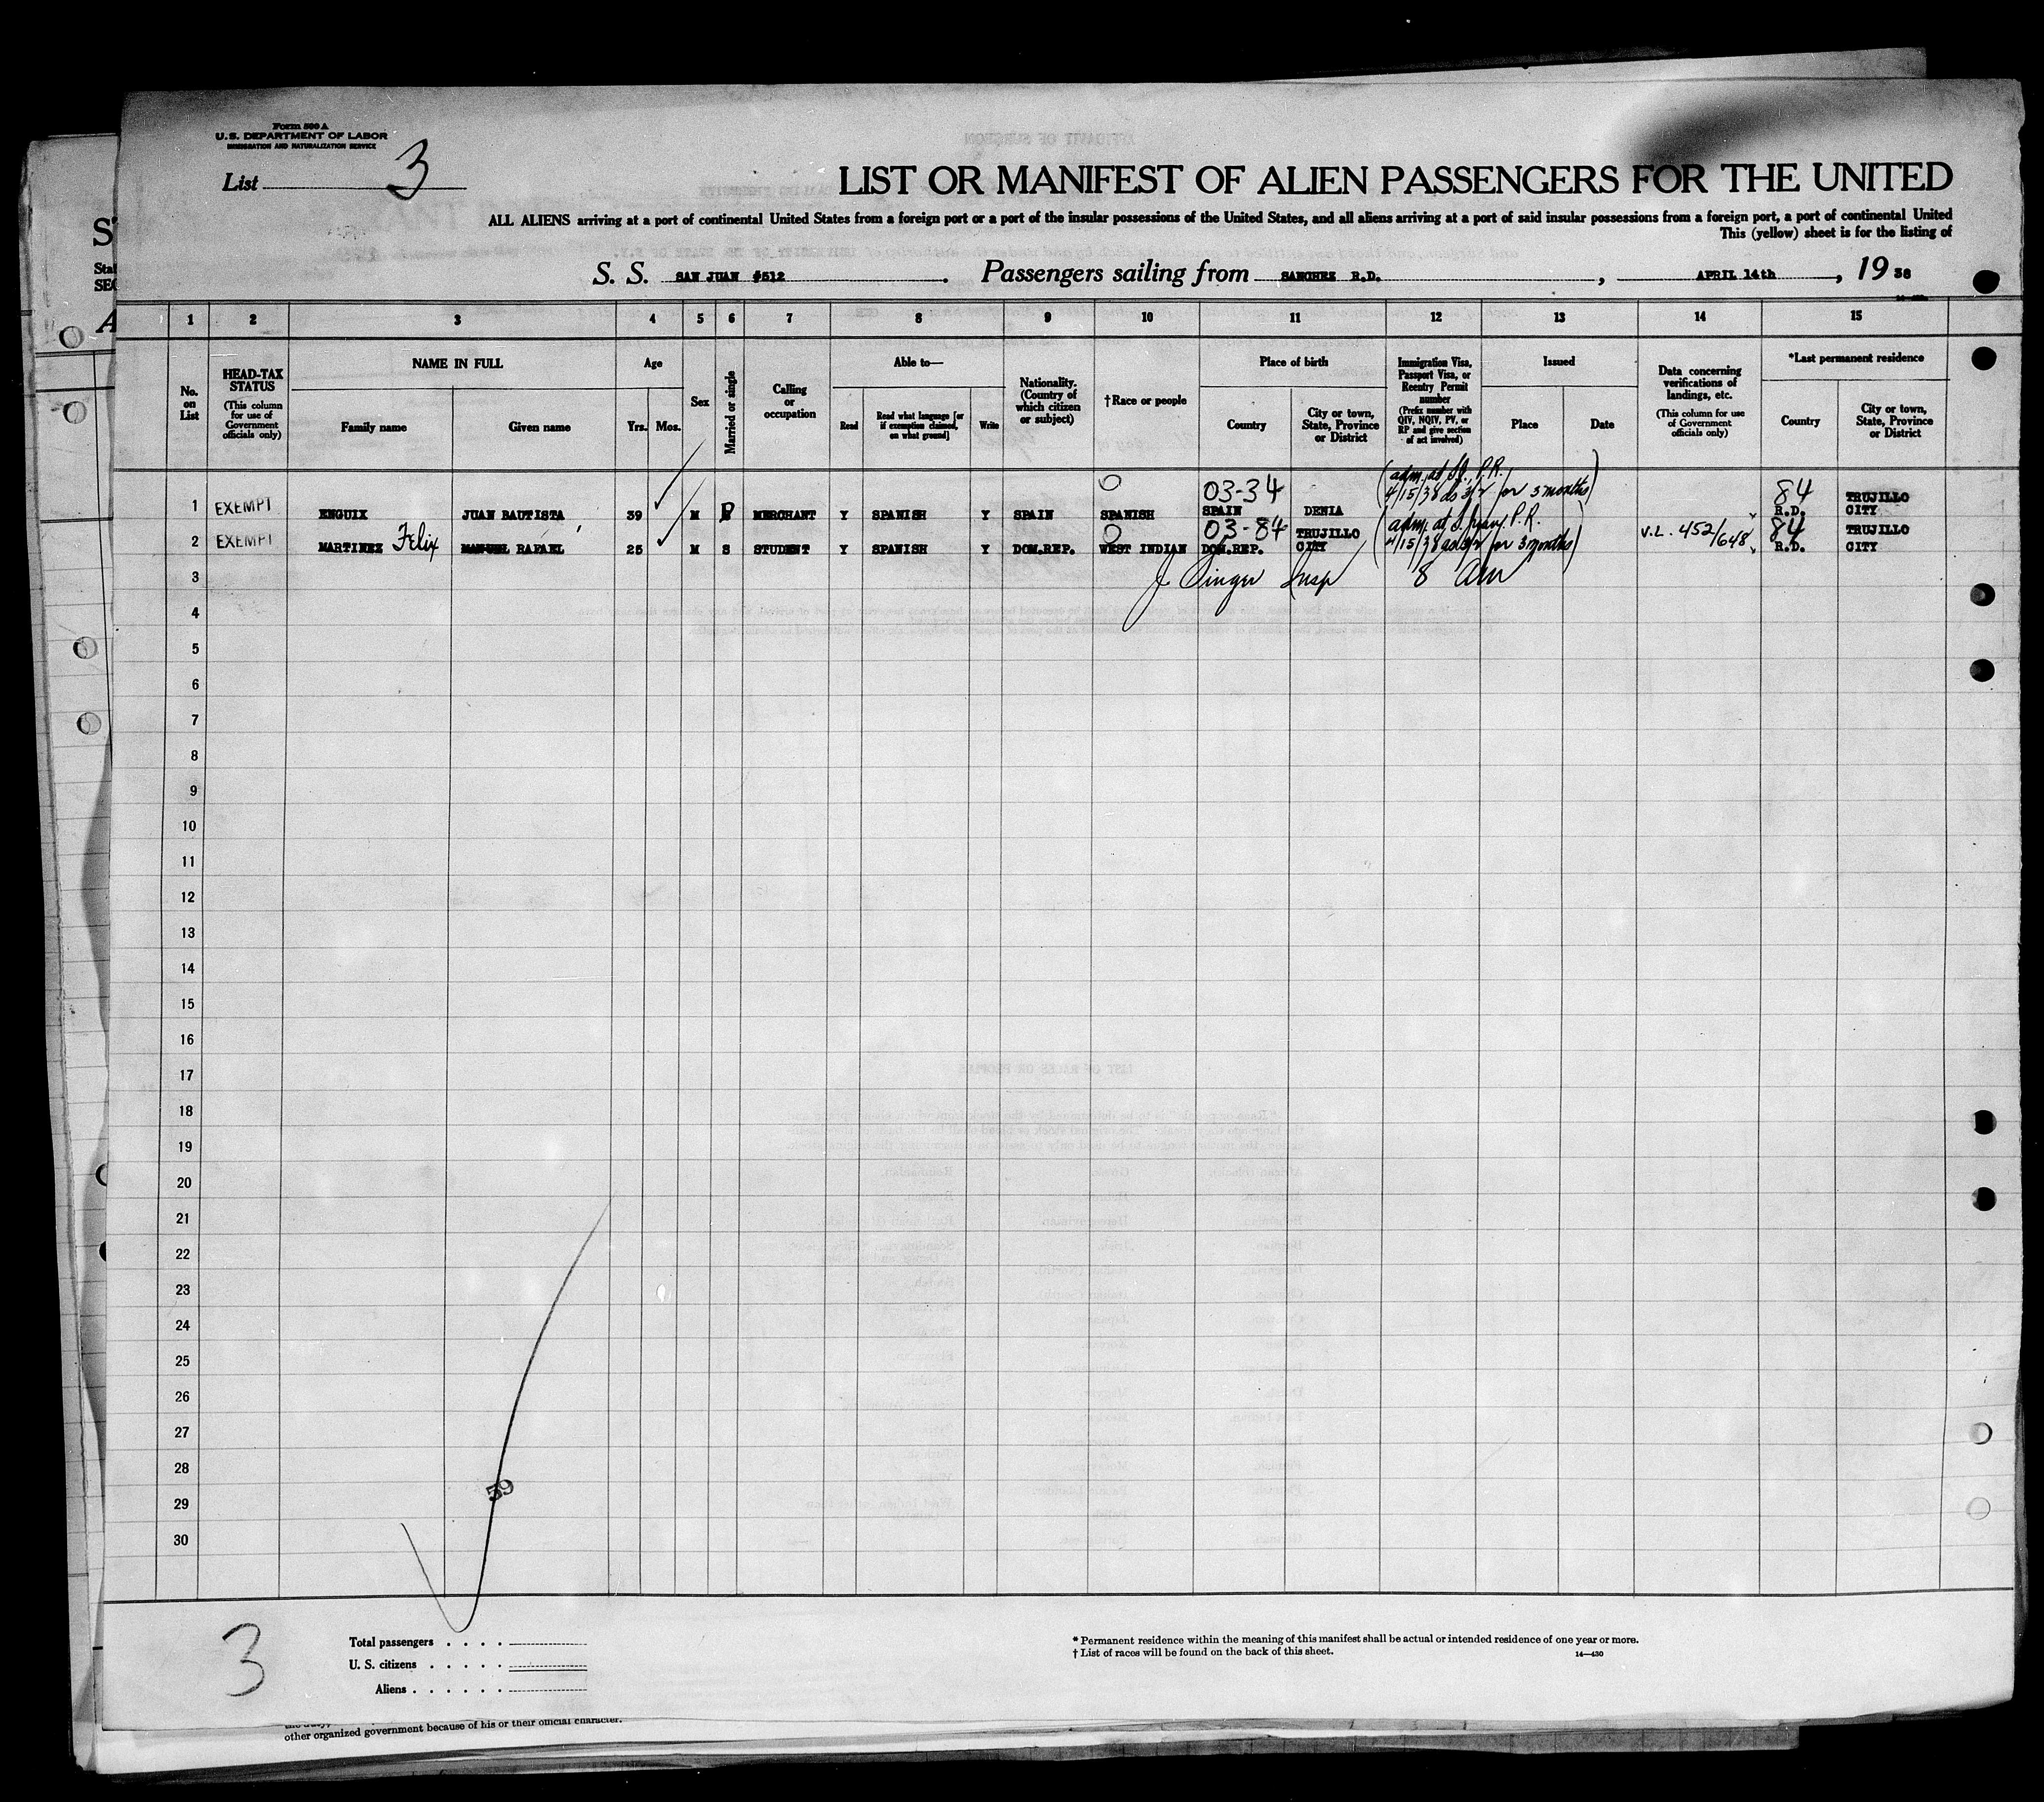 Form 500 A
U.S. DEPARTMENT OF LABOR
IMMIGRATION AND NATURALIZATION SERVICE
List 3
LIST OR MANIFEST OF ALIEN PASSENGERS FOR THE UNITED
ALL ALIENS arriving at a port of continental United States from a foreign port or a port of the insular possessions of the United States, and all aliens arriving at a port of said insular possessions from a foreign port, a port of continental United
This (yellow) sheet is for the listing of
S. S. SAN JUAN #512. Passengers sailing from SANCHEZ R.D., APRIL 14th, 19 38
1 2 3 4 5 6 7 8 9 10 11 12 13 14 15
No. on List
HEAD-TAX STATUS (This column for use of Government officials only)
NAME IN FULL
Family name
Given name
Age
Yrs. Mos.
Sex
Married or single
Calling or occupation
Able to—
Read
Read what language [or if exemption claimed, on what ground]
Write
Nationality. (Country of which citizen or subject)
†Race or people
Place of birth
Country
City or town, State, Province or District
Immigration Visa, Passport Visa, or Reentry Permit number (Prefix number with QIV, NQIV, PV, or RP and give section of act involved)
Issued
Place
Date
Data concerning verifications of landings, etc. (This column for use of Government officials only)
*Last permanent residence
Country
City or town, State, Province or District
03-34 (adm. at S.J., P.R. 4/15/38 as 3/2 for 3 months) 84
1 EXEMPT ENGUIX JUAN BAUTISTA 39 M MERCHANT Y SPANISH Y SPAIN SPANISH SPAIN DENIA R.D. TRUJILLO CITY
03-84 (adm. at S. Juan, P.R. 4/15/38 as 3/2 for 3 months) V.L. 452/648 84
2 EXEMPT MARTINEZ Felix MANUEL RAFAEL 25 M S STUDENT Y SPANISH Y DOM.REP. WEST INDIAN DOM.REP. TRUJILLO CITY R.D. TRUJILLO CITY
3 J Singer Insp 8 am
4
5
6
7
8
9
10
11
12
13
14
15
16
17
18
19
20
21
22
23
24
25
26
27
28
29
30
59
3
Total passengers . . . .
U. S. citizens . . . . .
Aliens . . . . . .
* Permanent residence within the meaning of this manifest shall be actual or intended residence of one year or more.
† List of races will be found on the back of this sheet.
14—430
other organized government because of his or their official character.